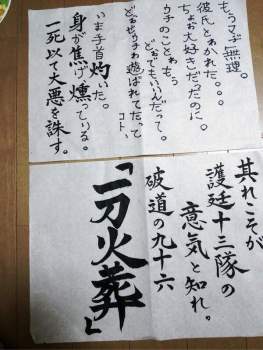 もうマヂ無理。
彼氏とゎかれた。。。
ちょお大好きだったのに。
ウチのことゎもぅ
どぉでもいいんだって。
どぉせぅちゎ遊ばれてたって
コト、
いま手首灼いた。
身が焦げ燻っている。
一死以て大悪を誅す。
其れこそが
護廷十三隊の
意気と知れ。
破道の九十六
「一刀火葬」